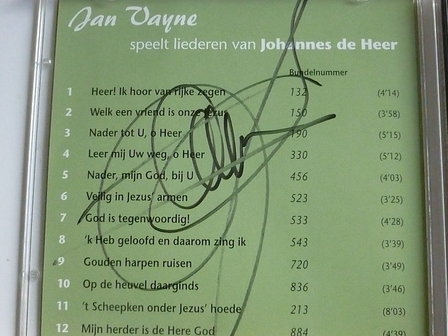 Jan Vayne
speelt liederen van Johannes de Heer
Bundelnummer
1 Heer! Ik hoor van rijke zegen 132 (4'14)
2 Welk een vriend is onze Jezus 150 (3'58)
3 Nader tot U, o Heer 190 (5'15)
4 Leer mij Uw weg, o Heer 330 (5'12)
5 Nader, mijn God, bij U 456 (4'03)
6 Veilig in Jezus' armen 523 (3'25)
7 God is tegenwoordig! 533 (4'28)
8 'k Heb geloofd en daarom zing ik 543 (3'39)
9 Gouden harpen ruisen 720 (3'49)
10 Op de heuvel daarginds 836 (3'46)
11 't Scheepken onder Jezus' hoede 213 (8'03)
12 Mijn herder is de Here God 884 (4'39)